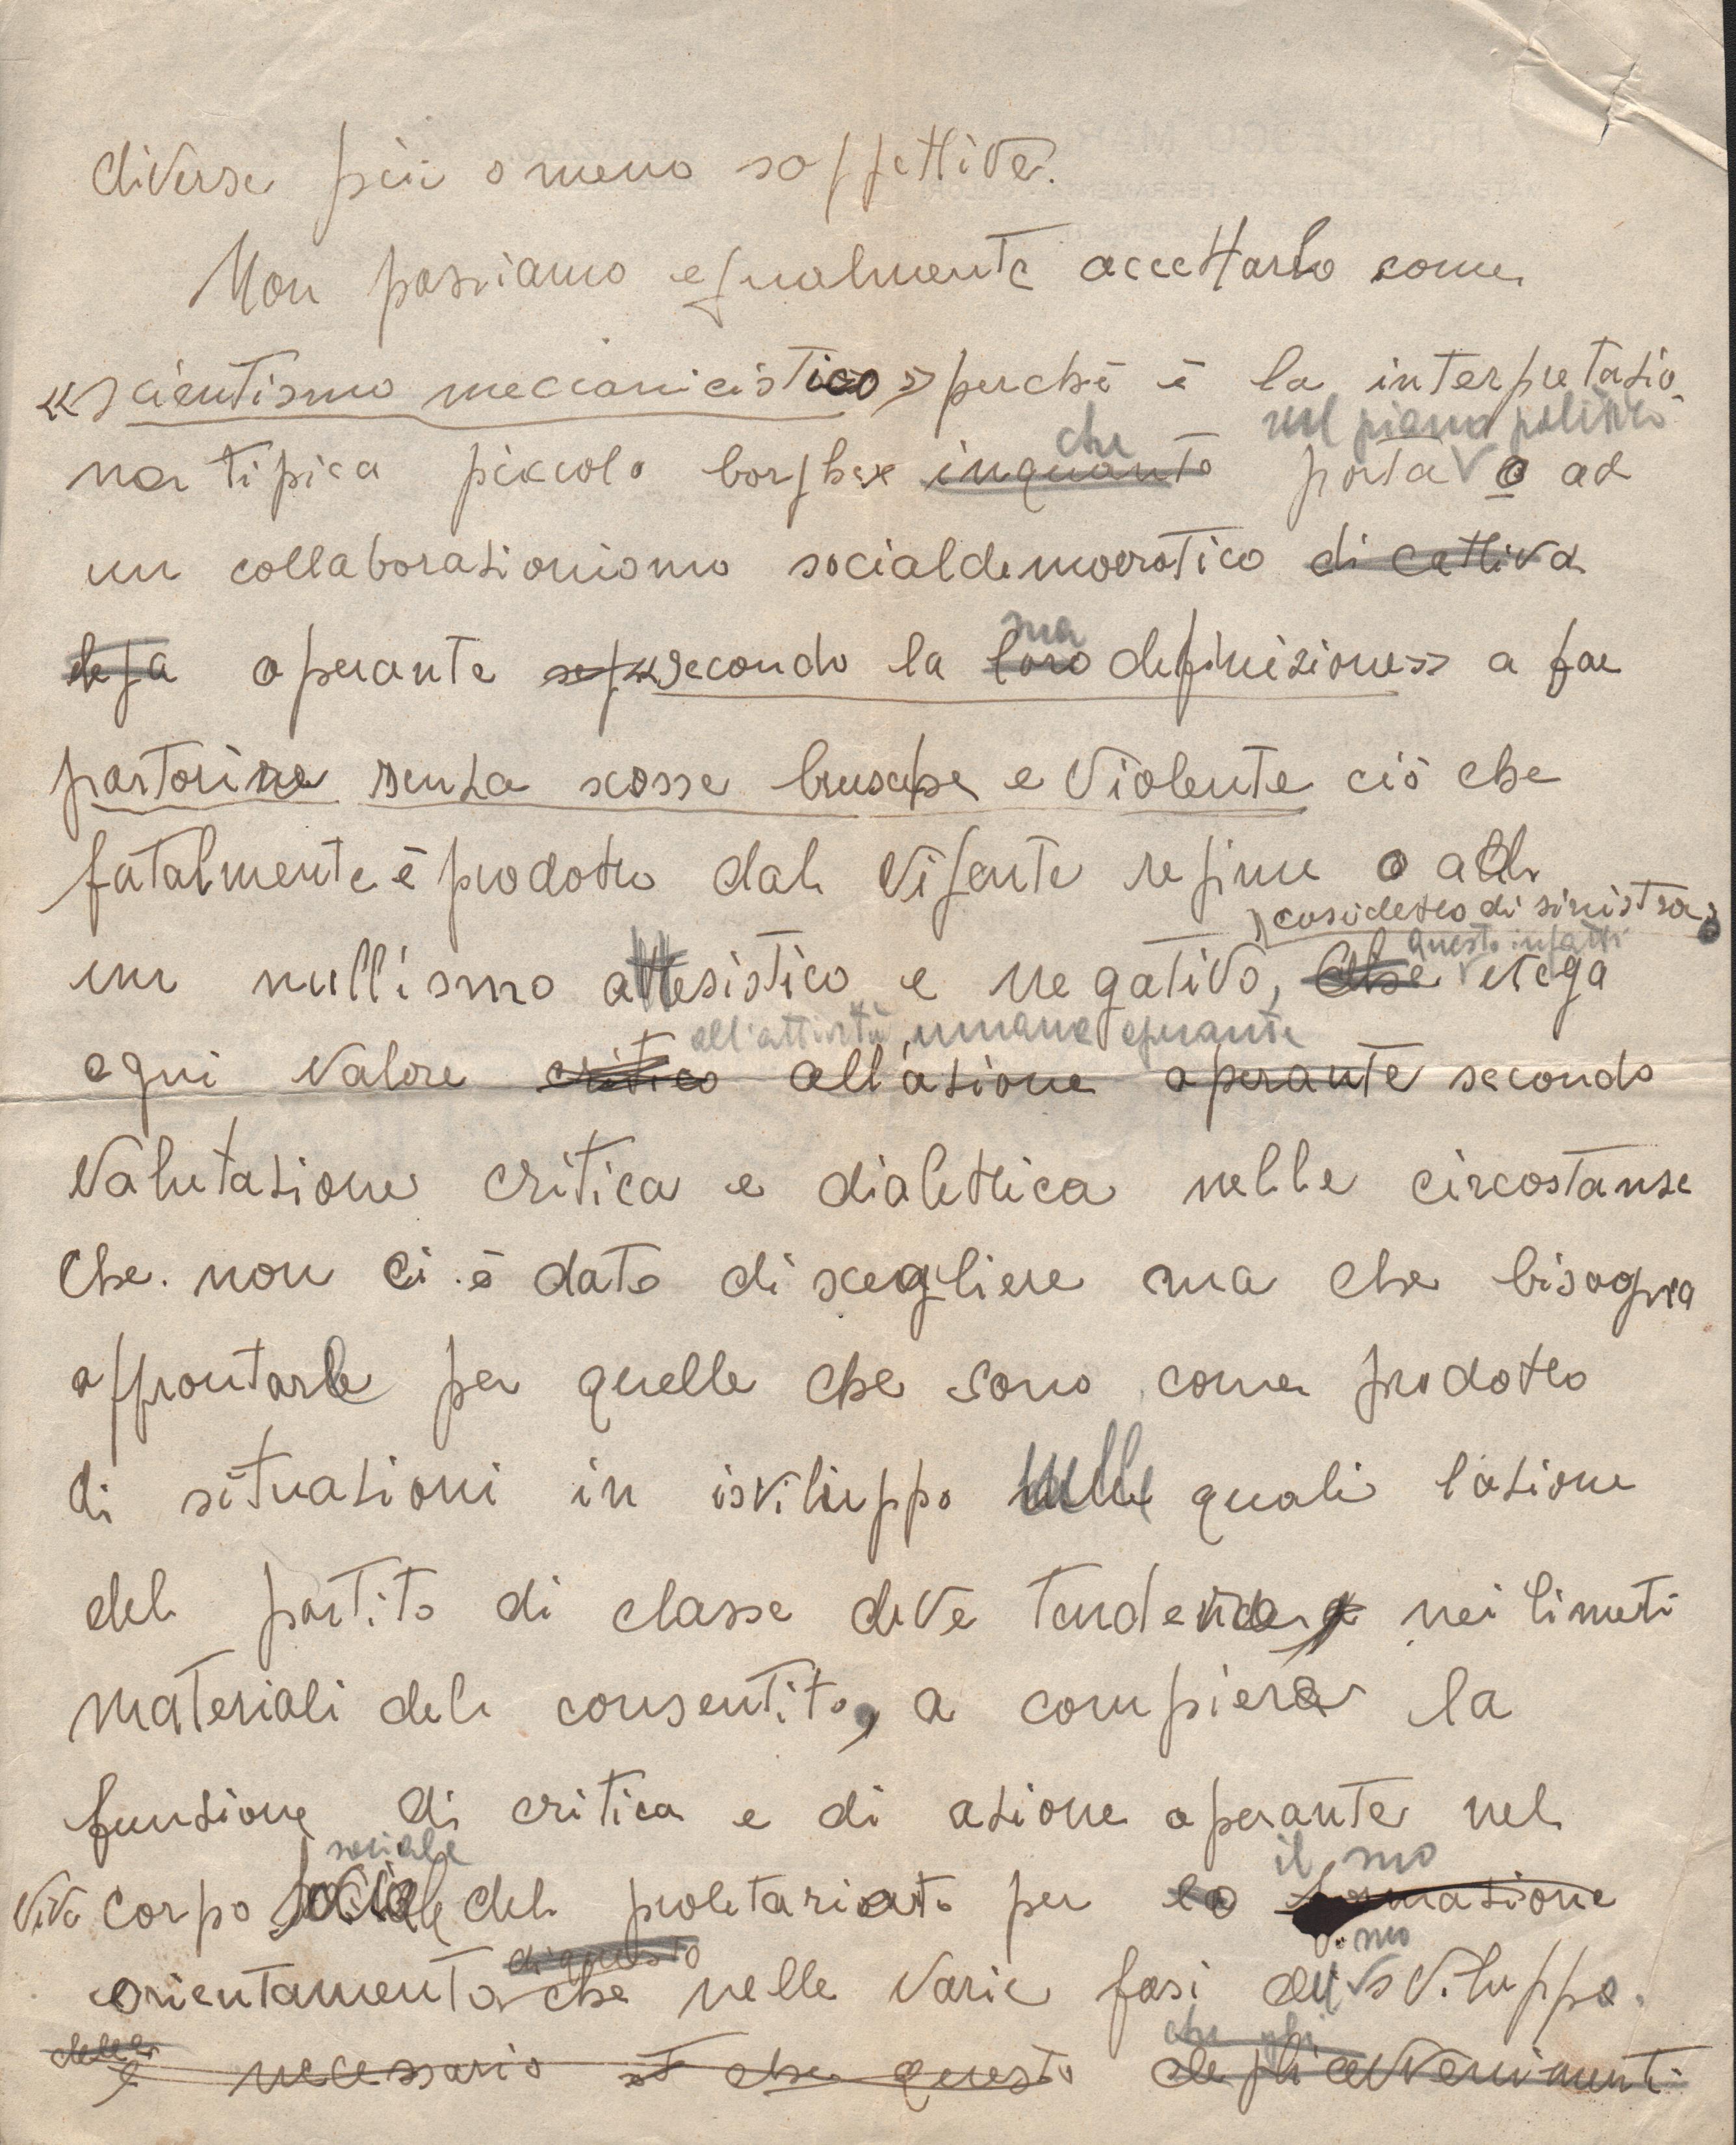 diverse più o meno soggettive.
Non possiamo egualmente accettarlo come
«scientismo meccanicistico» perchè è la interpretazio
che nel piano politico
na tipica piccolo borghese inquanto porta o ad
un collaborazionismo socialdemocratico di cattiva
sua
lega operante «secondo la loro definizione» a far
partorire senza scosse brusche e violente ciò che
fatalmente è prodotto dal vigente regime o ad
cosidetto di sinistra,
questo infatti
un nullismo attesistico e negativo, che nega
all'attività umana operante
ogni valore critico all'azione operante secondo
valutazione critica e dialettica nelle circostanze
che non ci è dato di scegliere ma che bisogna
affrontarle per quelle che sono come prodotto
di situazioni in isviluppo nelle quali l'azione
del partito di classe deve tendere, nei limiti
materiali del consentito, a compiere la
funzione di critica e di azione operante nel
sociale il suo
vivo corpo sociale del proletariato per la formazione
di questo suo
orientamento che nelle varie fasi di sviluppo.
che gli
delle è necessario che questo degli avvenimenti